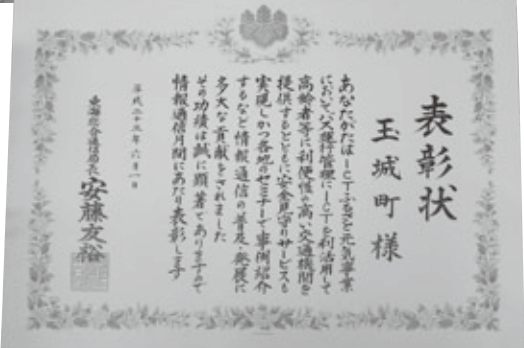 表彰状
玉城町様
あなたがたはICTふるさと元気事業
においてバス運行管理にICTを利活用して
高齢者等に利便性の高い交通機関を
提供するとともに安全見守りサービスも
実現しかつ各地のセミナーで事例紹介
するなど情報通信の普及・発展に
多大な貢献をされました
その功績は誠に顕著でありますので
情報通信月間にあたり表彰します
平成二十五年六月一日
東海総合通信局長 安藤友裕